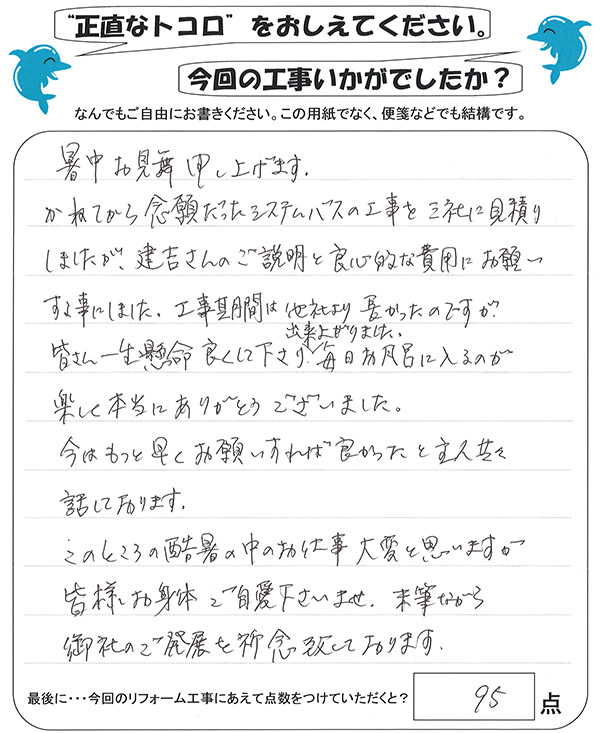 "正直なトコロ" をおしえてください。
今回の工事いかがでしたか?
なんでもご自由にお書きください。この用紙でなく、便箋などでも結構です。
暑中お見舞申し上げます。
かねてから念願だったシステムバスの工事を三社に見積り
しましたが、建吉さんのご説明と良心的な費用にお願い
する事にしました。工事期間は他社より長かったのですが
出来上がりました。
皆さん一生懸命良くして下さり、毎日お風呂に入るのが
楽しく本当にありがとうございました。
今はもっと早くお願いすれば良かったと主人共々
話しております。
このところの酷暑の中のお仕事大変と思いますが
皆様お身体ご自愛下さいませ。末筆ながら
御社のご発展を祈念致しております。
最後に・・・今回のリフォーム工事にあえて点数をつけていただくと? 95 点